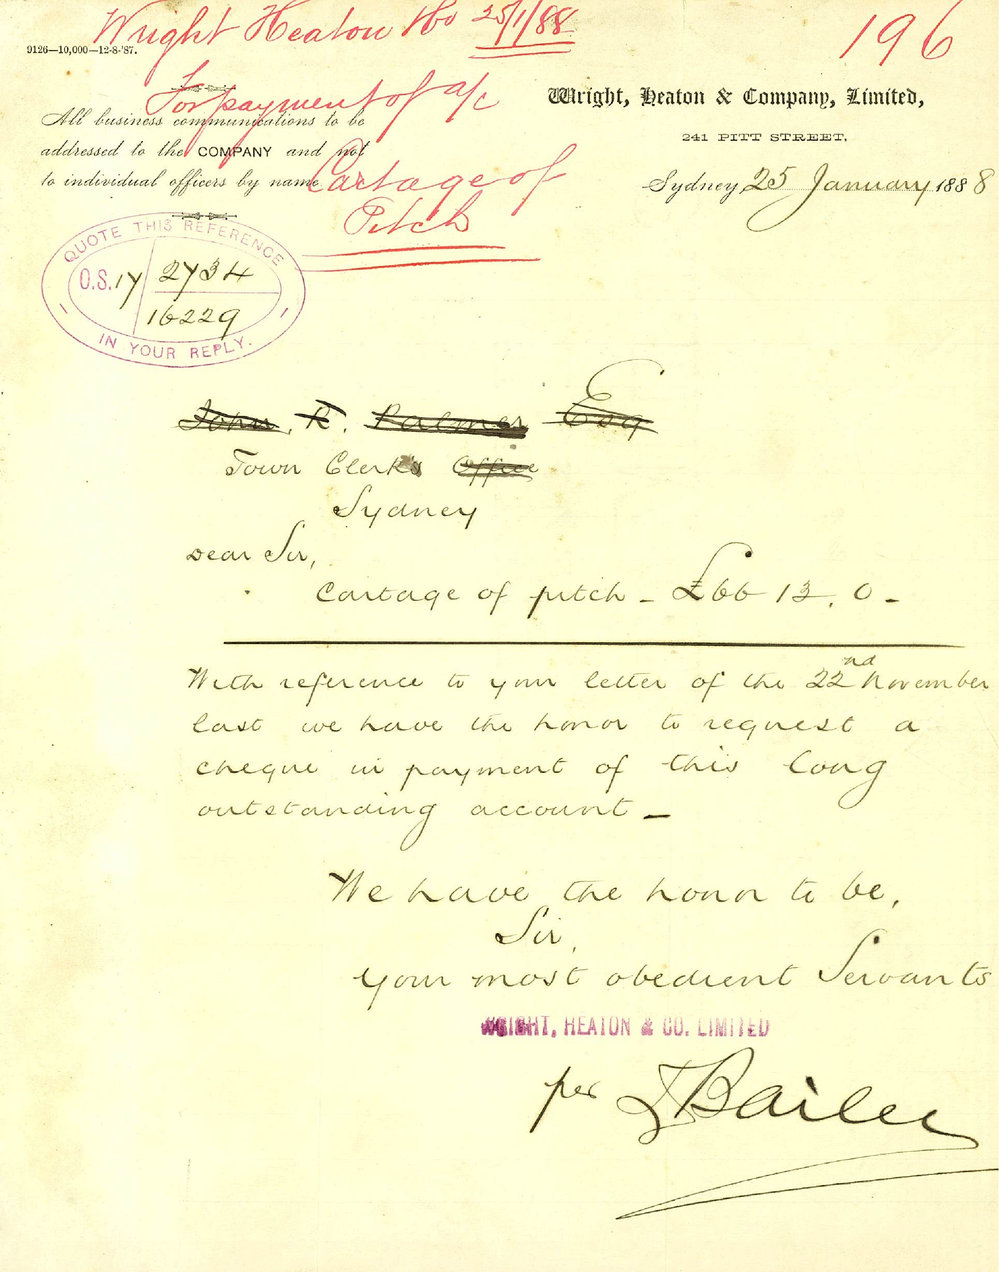 Wright Heaton & Co 25/1/88
196
9126—10,000—12-8-'87.
For payment of a/c
Cartage of
Pitch
All business communications to be
addressed to the COMPANY and not
to individual officers by name.
Wright, Heaton & Company, Limited,
241 PITT STREET,
Sydney, 25 January 1888
QUOTE THIS REFERENCE
O.S. 17 2734
16229
IN YOUR REPLY.
John. R. Palmer Esq
Town Clerk's Office
Sydney
Dear Sir,
Cartage of pitch - £66 13. 0 -
With reference to your letter of the 22nd November
last we have the honor to request a
cheque in payment of this long
outstanding account -
We have the honor to be,
Sir,
Your most obedient Servants
WRIGHT, HEATON & CO. LIMITED
per Bailee